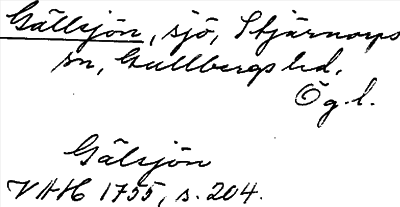 Gällsjön, sjö, Stjärnorps
sn, Gullbergs hd,
Ög.l.
Gälsjön
VAH 1755, s. 204.